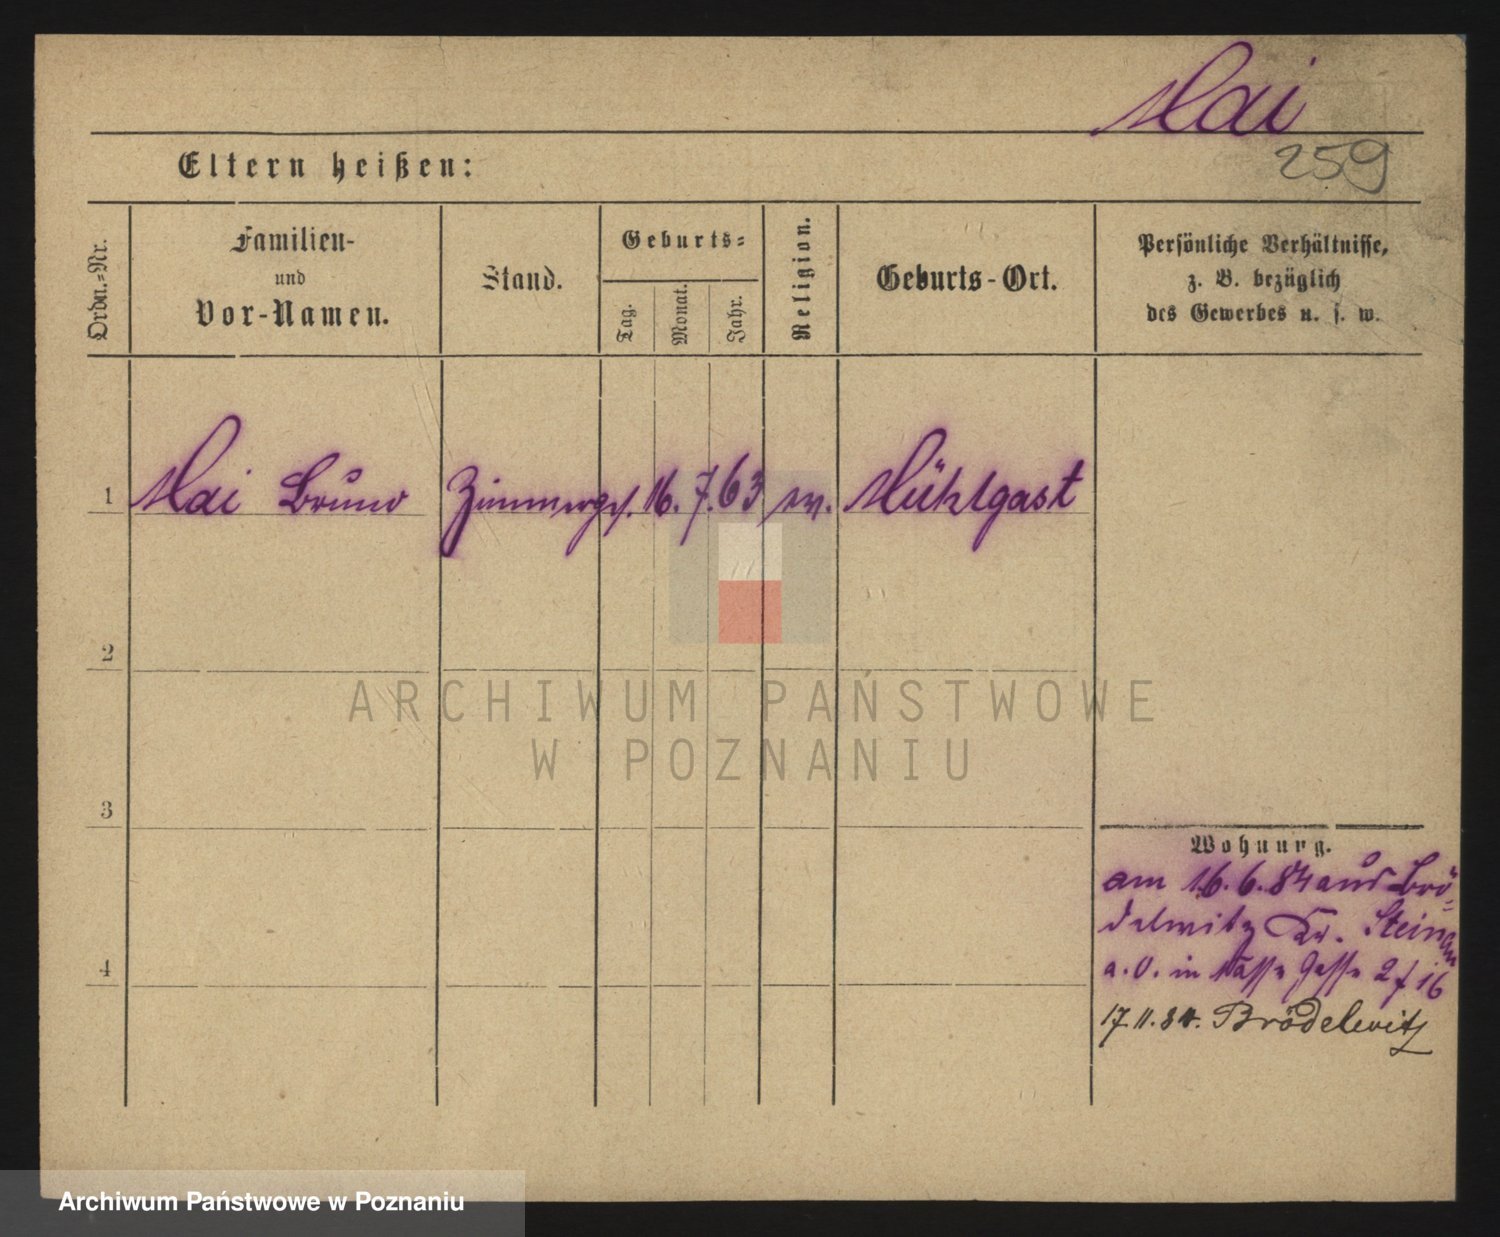 Mai
259
Eltern heißen:
Ordn.-Nr.
Familien-
und
Vor-Namen.
Stand.
Geburts-
Tag.
Monat.
Jahr.
Religion.
Geburts-Ort.
Persönliche Verhältnisse,
z. B. bezüglich
des Gewerbes u. s. w.
1 Mai Bruno Zimmerges. 16. 7. 63 ev. Mühlgast
2
ARCHIWUM PAŃSTWOWE
W POZNANIU
3
Wohnung.
am 16.6.84 aus Brö-
delwitz Kr. Steinau
4
a.O. in Nasse Gasse 2 f 16
17.11.84. Brödelwitz
Archiwum Państwowe w Poznaniu